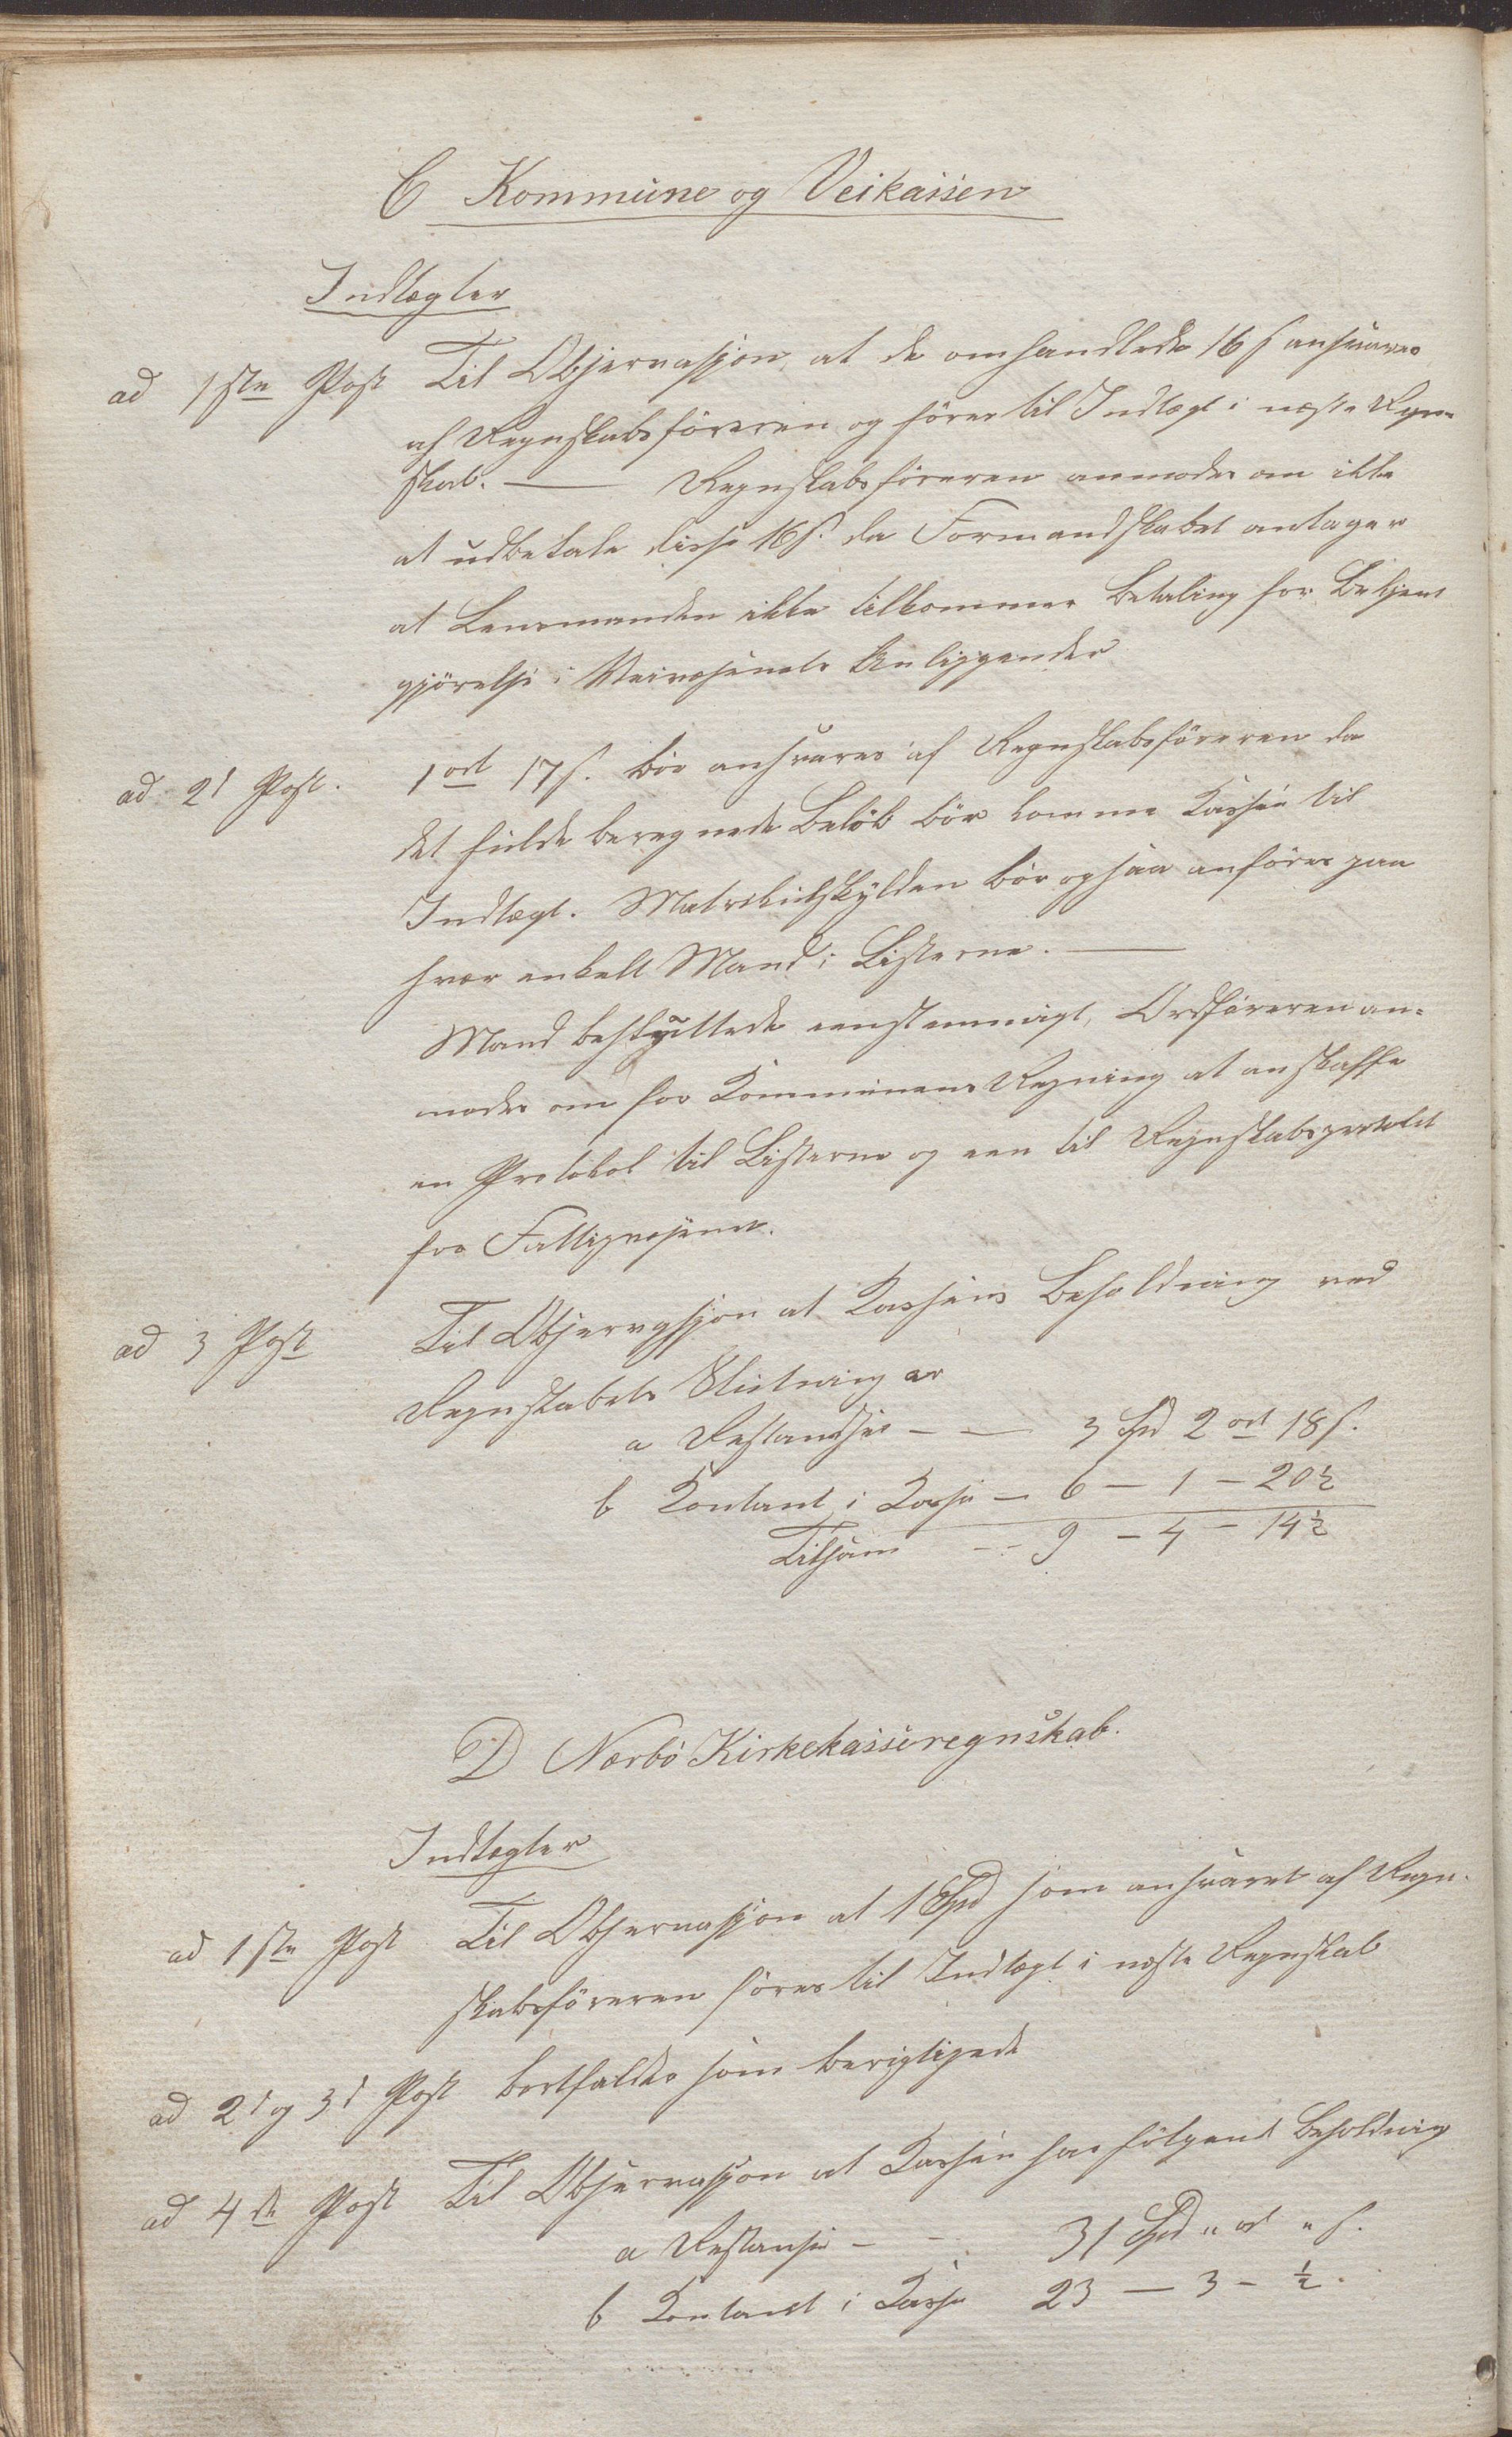 C Kommune og Veikassen
Indtægter
ad 1ste Post Til Observasjon, at de omhandlede 16 s ansvares
af Regnskabsföreren og föres til Indtægt i næste Regn-
skab. — Regnskabsföreren anmodes om ikke
at udbetale disse 16 s. da Formandskabet antager
at Lensmanden ikke tilkommer Betaling for Bekjent
gjörelse i Veivæsenets Anliggender
ad 2d Post. 1 ort 17 s. bör ansvares af Regnskabsföreren da
det fulde beregnede Belöb bör komme Kassen til
Indtægt. Matrikulskylden bör ogsaa anföres paa
hver enkelt Mand i Listerne. —
Mand besluttede eenstemmigt, Ordföreren an-
modes om for Kommunens Regning at anskaffe
en Protokol til Listerne og een til Regnskabsprotokol
for Fattigvæsenet.
ad 3 Post Til Observasjon at Kassens Beholdning ved
Regnskabets Slutning er
a Restantser - — 3 Spd 2 ort 18 s.
b Kontant i Kasse — 6 — 1 — 20½
Tilsam - - 9 — 4 — 14½
D Nærbö Kirkekasseregnskab.
Indtægter
ad 1ste Post Til Observasjon at 1 Spd som ansvaret af Regn-
skabsföreren föres til Indtægt i næste Regnskab
ad 2d og 3d Post bortfaldes som berigtigede
ad 4de Post Til Observasjon at Kassen har fölgende Beholdning
a Restanser - - 31 Spd " ort " s.
b Kontant i Kasse 23 — 3 - ½.